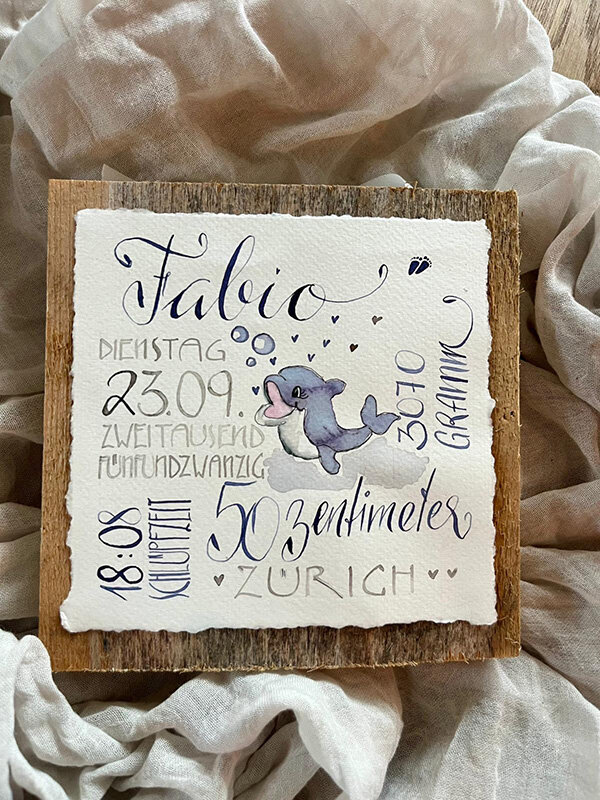 Fabio
DIENSTAG
23.09.
ZWEITAUSEND
FÜNFUNDZWANZIG
3070
GRAMM
18:08
SCHLÜPFZEIT
50 zentimeter
ZÜRICH